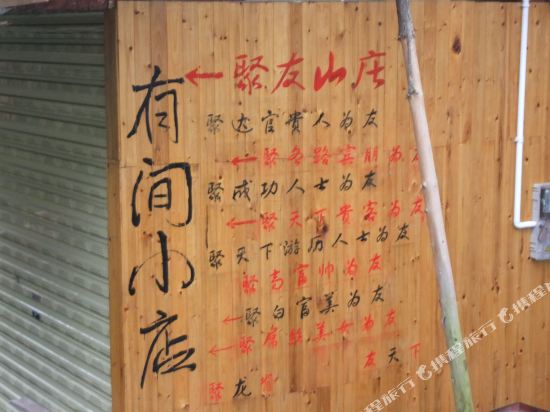 有间小店
←聚友山庄
聚达官贵人为友
←聚各路宾朋为友
聚成功人士为友
←聚天下贵客为友
聚天下游历人士为友
聚高富帅为友
←聚白富美为友
←聚 美女为友
聚龙 友天下
携程旅行
携程旅行